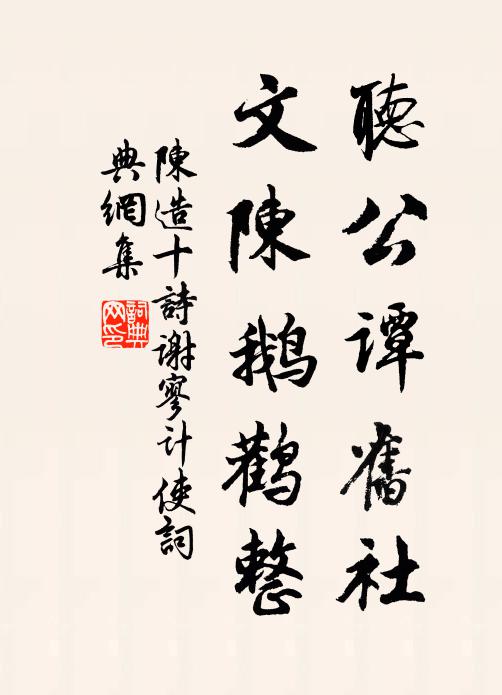 聽公譚舊社
文陳鵝鸛整
陳造十詩谢寥计使詞
典網集
詞典
网印